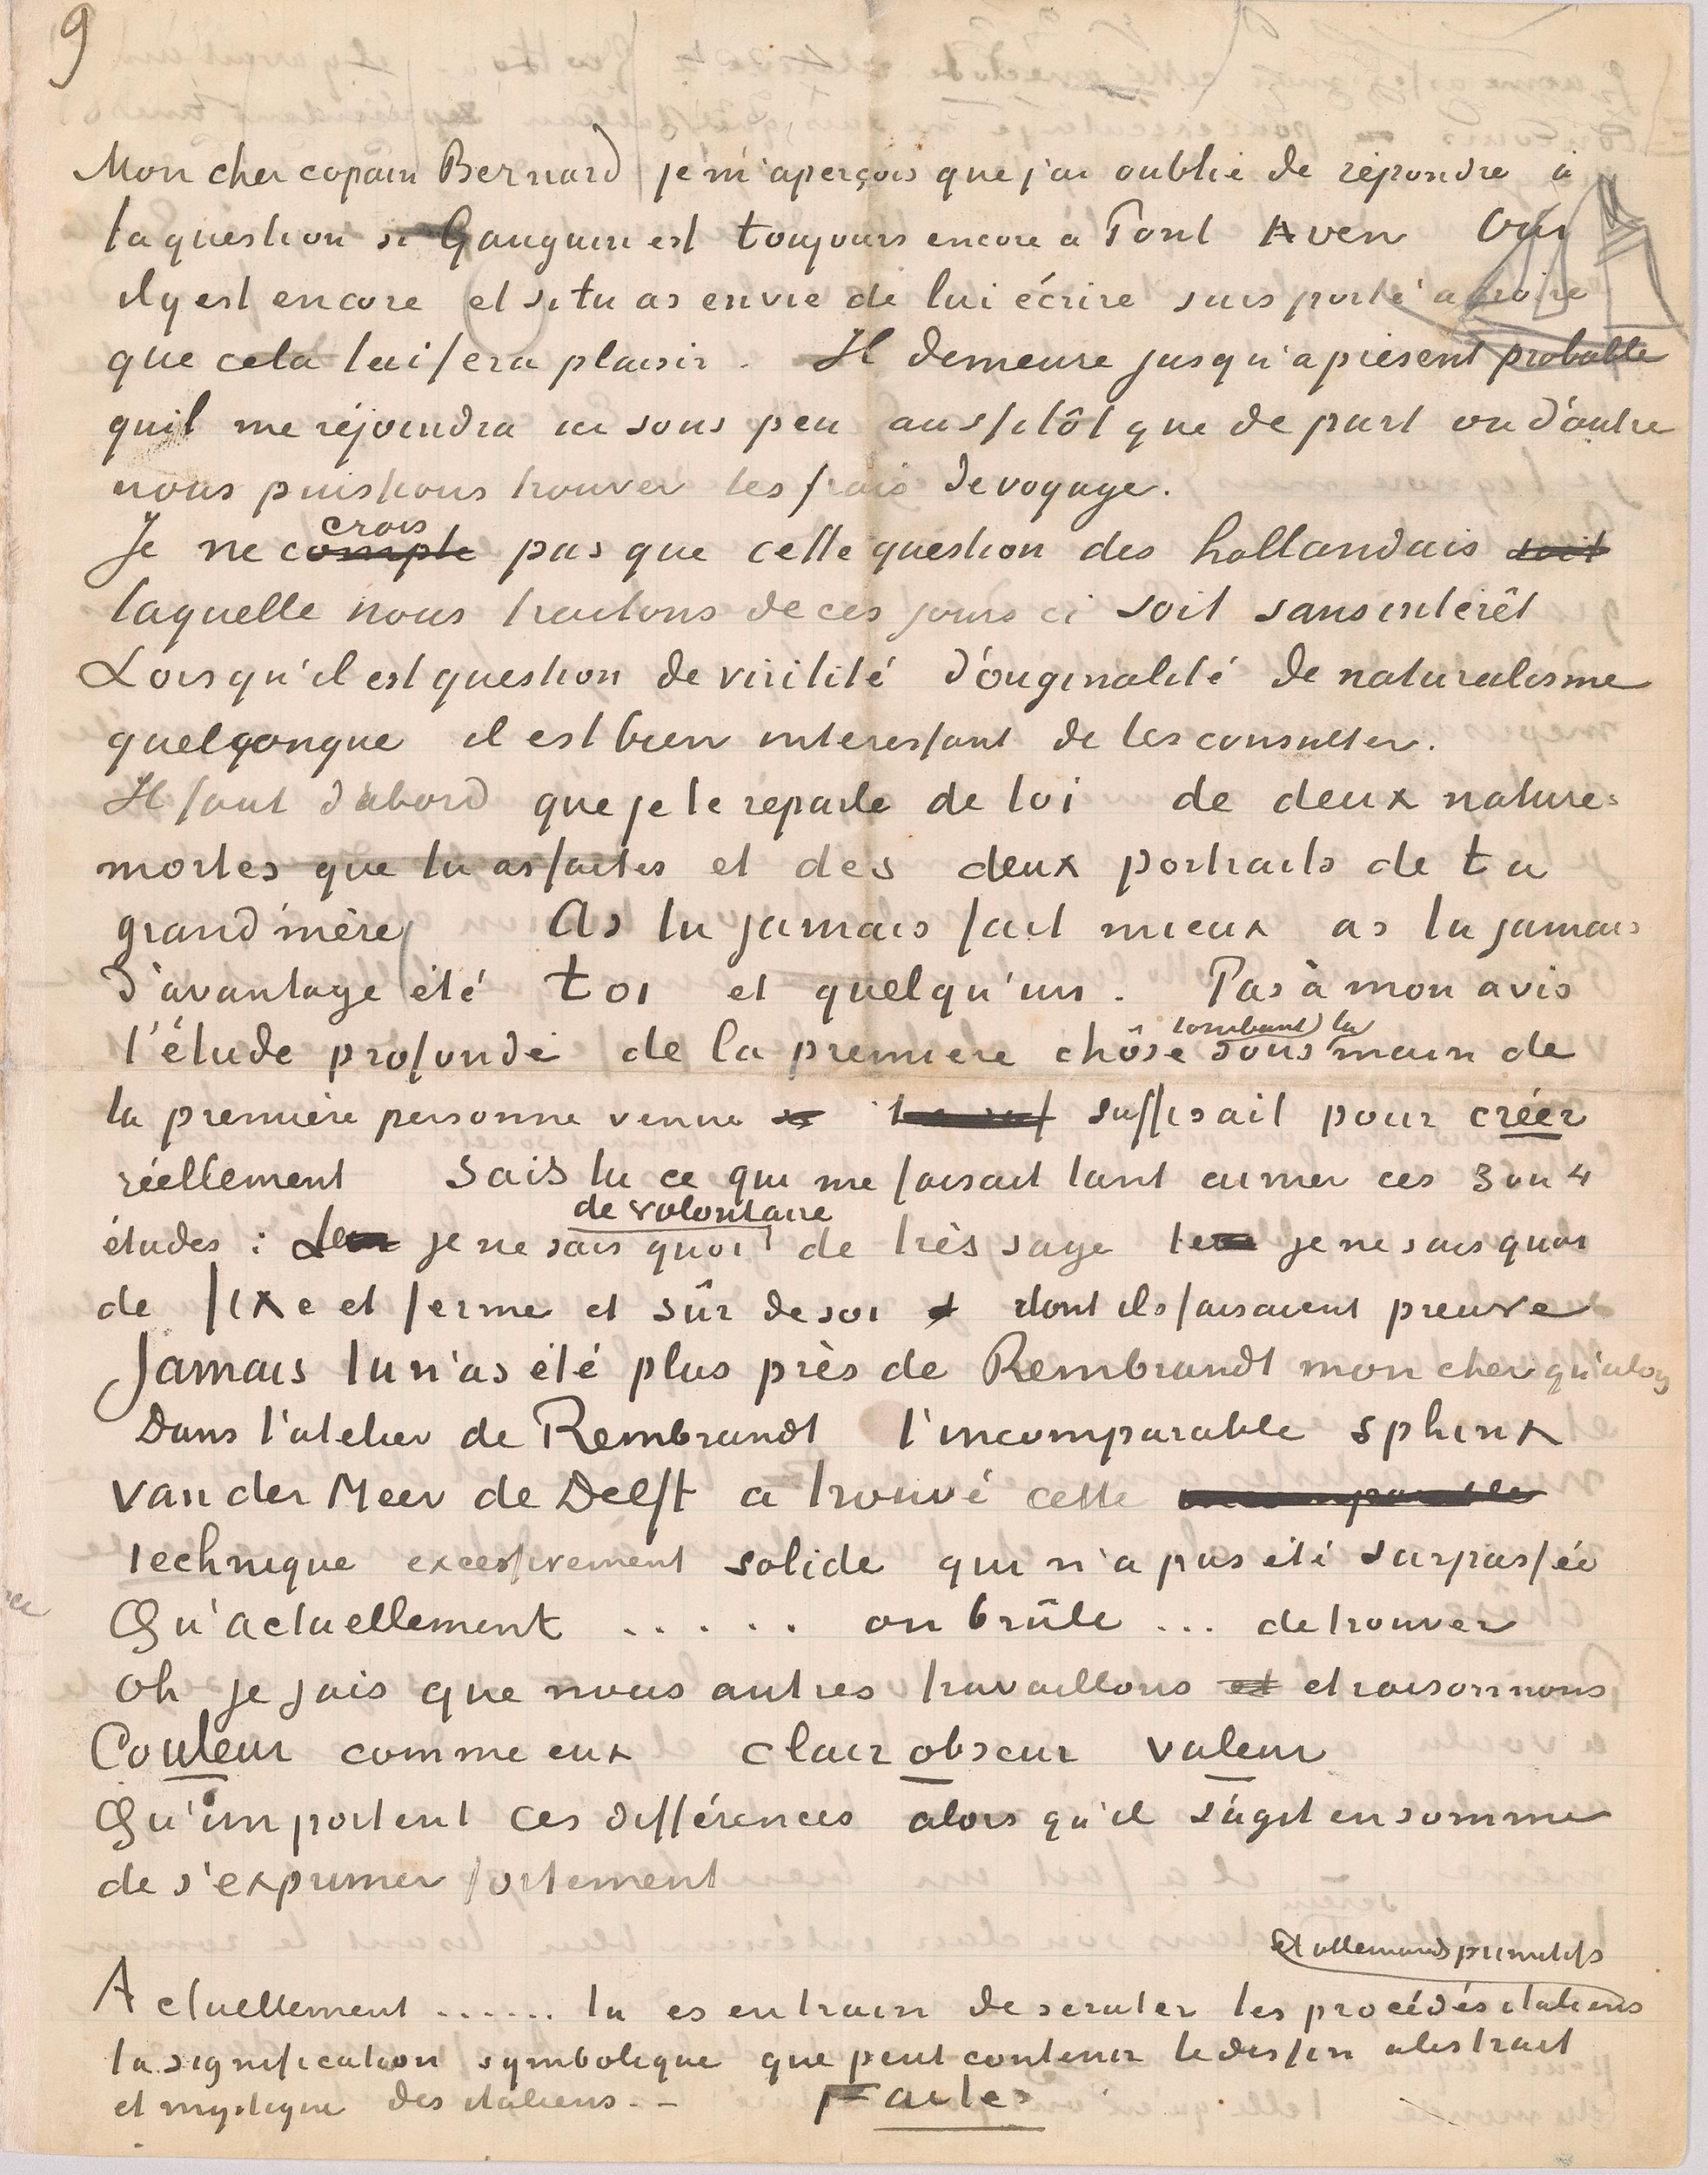 9
Mon cher copain Bernard je m'aperçois que j'ai oublié de répondre à
ta question si Gauguin est toujours encore à Pont Aven Oui
il y est encore et si tu as envie de lui écrire suis porté à croire
que cela lui fera plaisir. Il demeure jusqu'à présent probable
qu'il me rejoindra ici sous peu aussitôt que de part ou d'autre
nous puissions trouver les frais de voyage.
crois
Je ne compte pas que cette question des hollandais soit
laquelle nous traitons de ces jours ci soit sans intérêt
Lorsqu'il est question de virilité d'originalité de naturalisme
quelconque il est bien interessant de les consulter.
Il faut d'abord que je te reparle de toi de deux natures
mortes que tu as faites et des deux portraits de ta
grand'mère As tu jamais fait mieux as tu jamais
d'avantage été toi et quelqu'un. Pas à mon avis
tombant la
l'étude profonde de la première chôse sous main de
la première personne venue suffisait pour créer
réellement Sais tu ce qui me faisait tant aimer ces 3 ou 4
de volontaire
études : je ne sais quoi de très sage je ne sais quoi
de fixe et ferme et sûr de soi dont ils faisaient preuve
Jamais tu n'as été plus près de Rembrandt mon cher qu'alors
Dans l'atelier de Rembrandt l'incomparable sphinx
van der Meer de Delft a trouvé cette incomparable
technique excessivement solide qui n'a pas été surpassée
Qu'actuellement ..... on brûle ... de trouver
Oh je sais que nous autres travaillons et et raisonnons
Couleur comme eux clair obscur valeur
Qu'importent ces différences alors qu'il s'agit en somme
de s'exprimer fortement
et allemands primitifs
Actuellement ...... tu es en train de scruter les procédés italiens
la signification symbolique que peut contenir le dessin abstrait
et mystique des italiens.- Faites